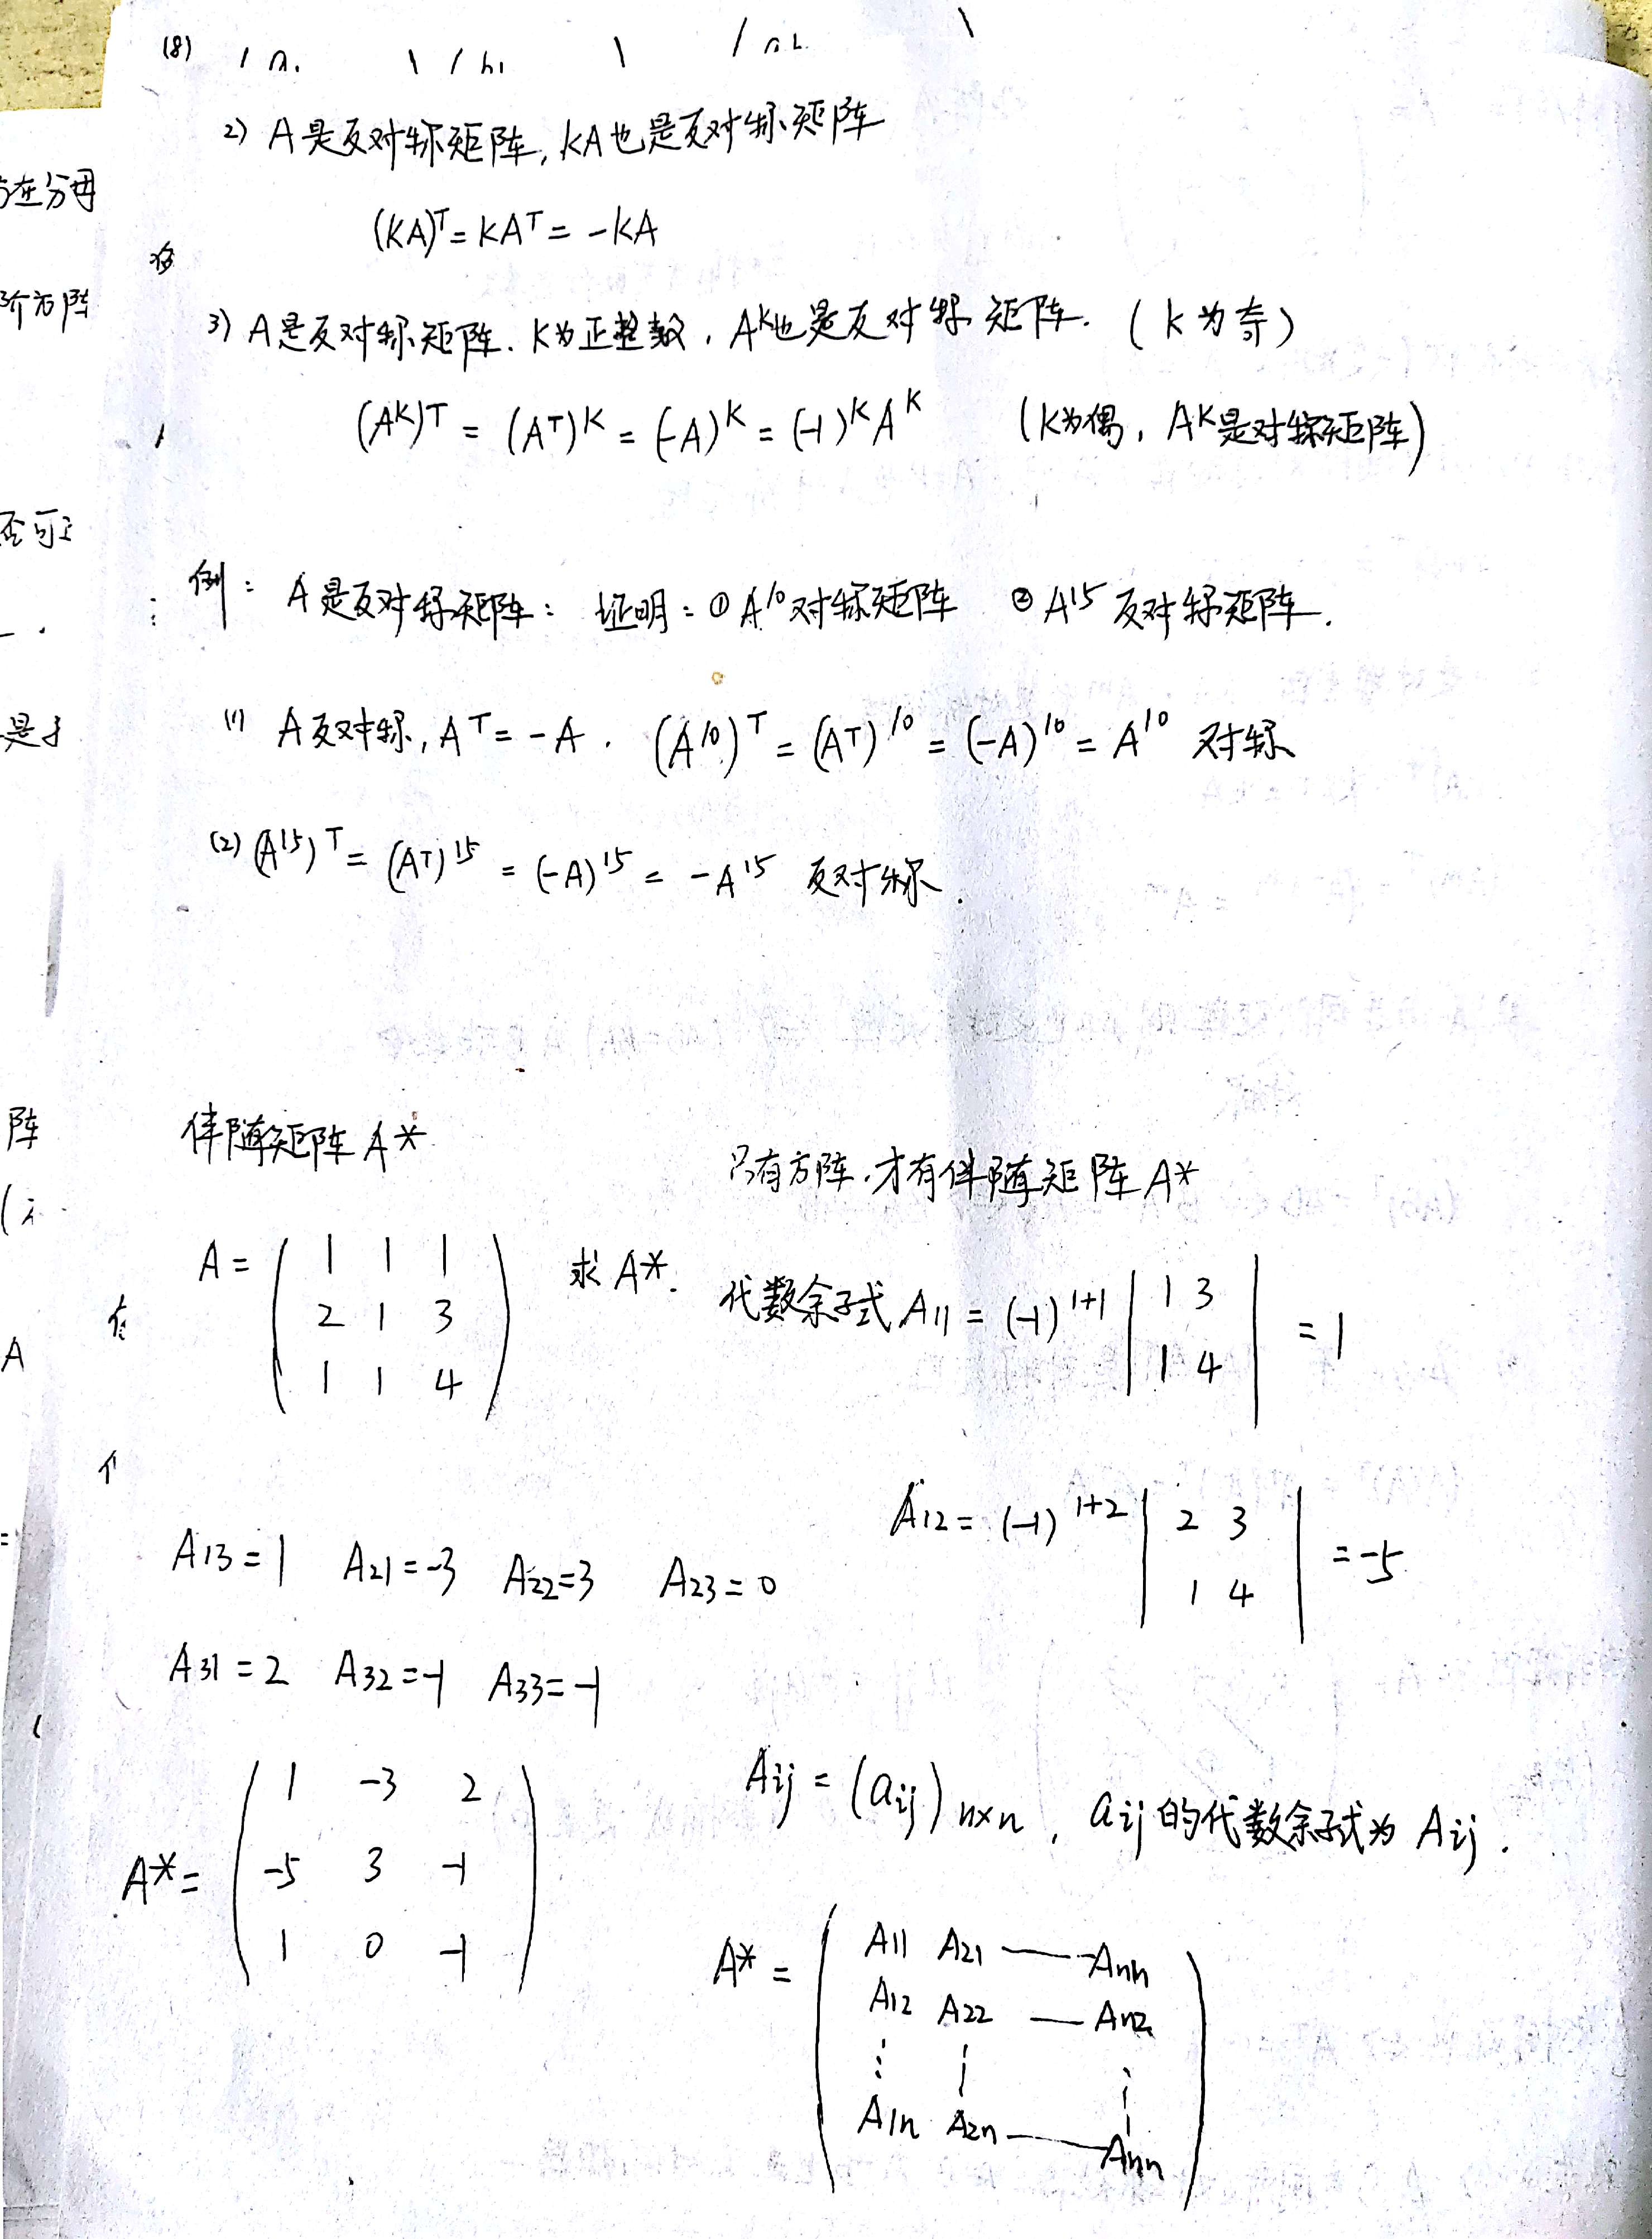 (8)
2) A是反对称矩阵, KA也是反对称矩阵
(KA)ᵀ = KAᵀ = -KA
3) A是反对称矩阵. K为正整数, Aᴷ也是反对称矩阵. (k为奇)
(Aᴷ)ᵀ = (Aᵀ)ᴷ = (-A)ᴷ = (-1)ᴷAᴷ (K为偶, Aᴷ是对称矩阵)
例: A是反对称矩阵: 证明: ① A¹⁰对称矩阵 ② A¹⁵反对称矩阵.
(1) A反对称, Aᵀ = -A. (A¹⁰)ᵀ = (Aᵀ)¹⁰ = (-A)¹⁰ = A¹⁰ 对称
(2) (A¹⁵)ᵀ = (Aᵀ)¹⁵ = (-A)¹⁵ = -A¹⁵ 反对称.
伴随矩阵 A*
只有方阵.才有伴随矩阵A*
A = ( 1 1 1
2 1 3
1 1 4 ) 求A*.
代数余子式 A11 = (-1)¹⁺¹ | 1 3
1 4 | = 1
A12 = (-1)¹⁺² | 2 3
1 4 | = -5
A13=1 A21=-3 A22=3 A23=0
A31=2 A32=-1 A33=-1
A* = ( 1 -3 2
-5 3 -1
1 0 -1 )
Aij = (aij)n×n, aij的代数余子式为Aij.
A* = ( A11 A21 — Ann
A12 A22 — An2
⋮ ⋮ ⋮
A1n A2n — Ann )
在分母
阶方阵
否可
是
阵
A
=